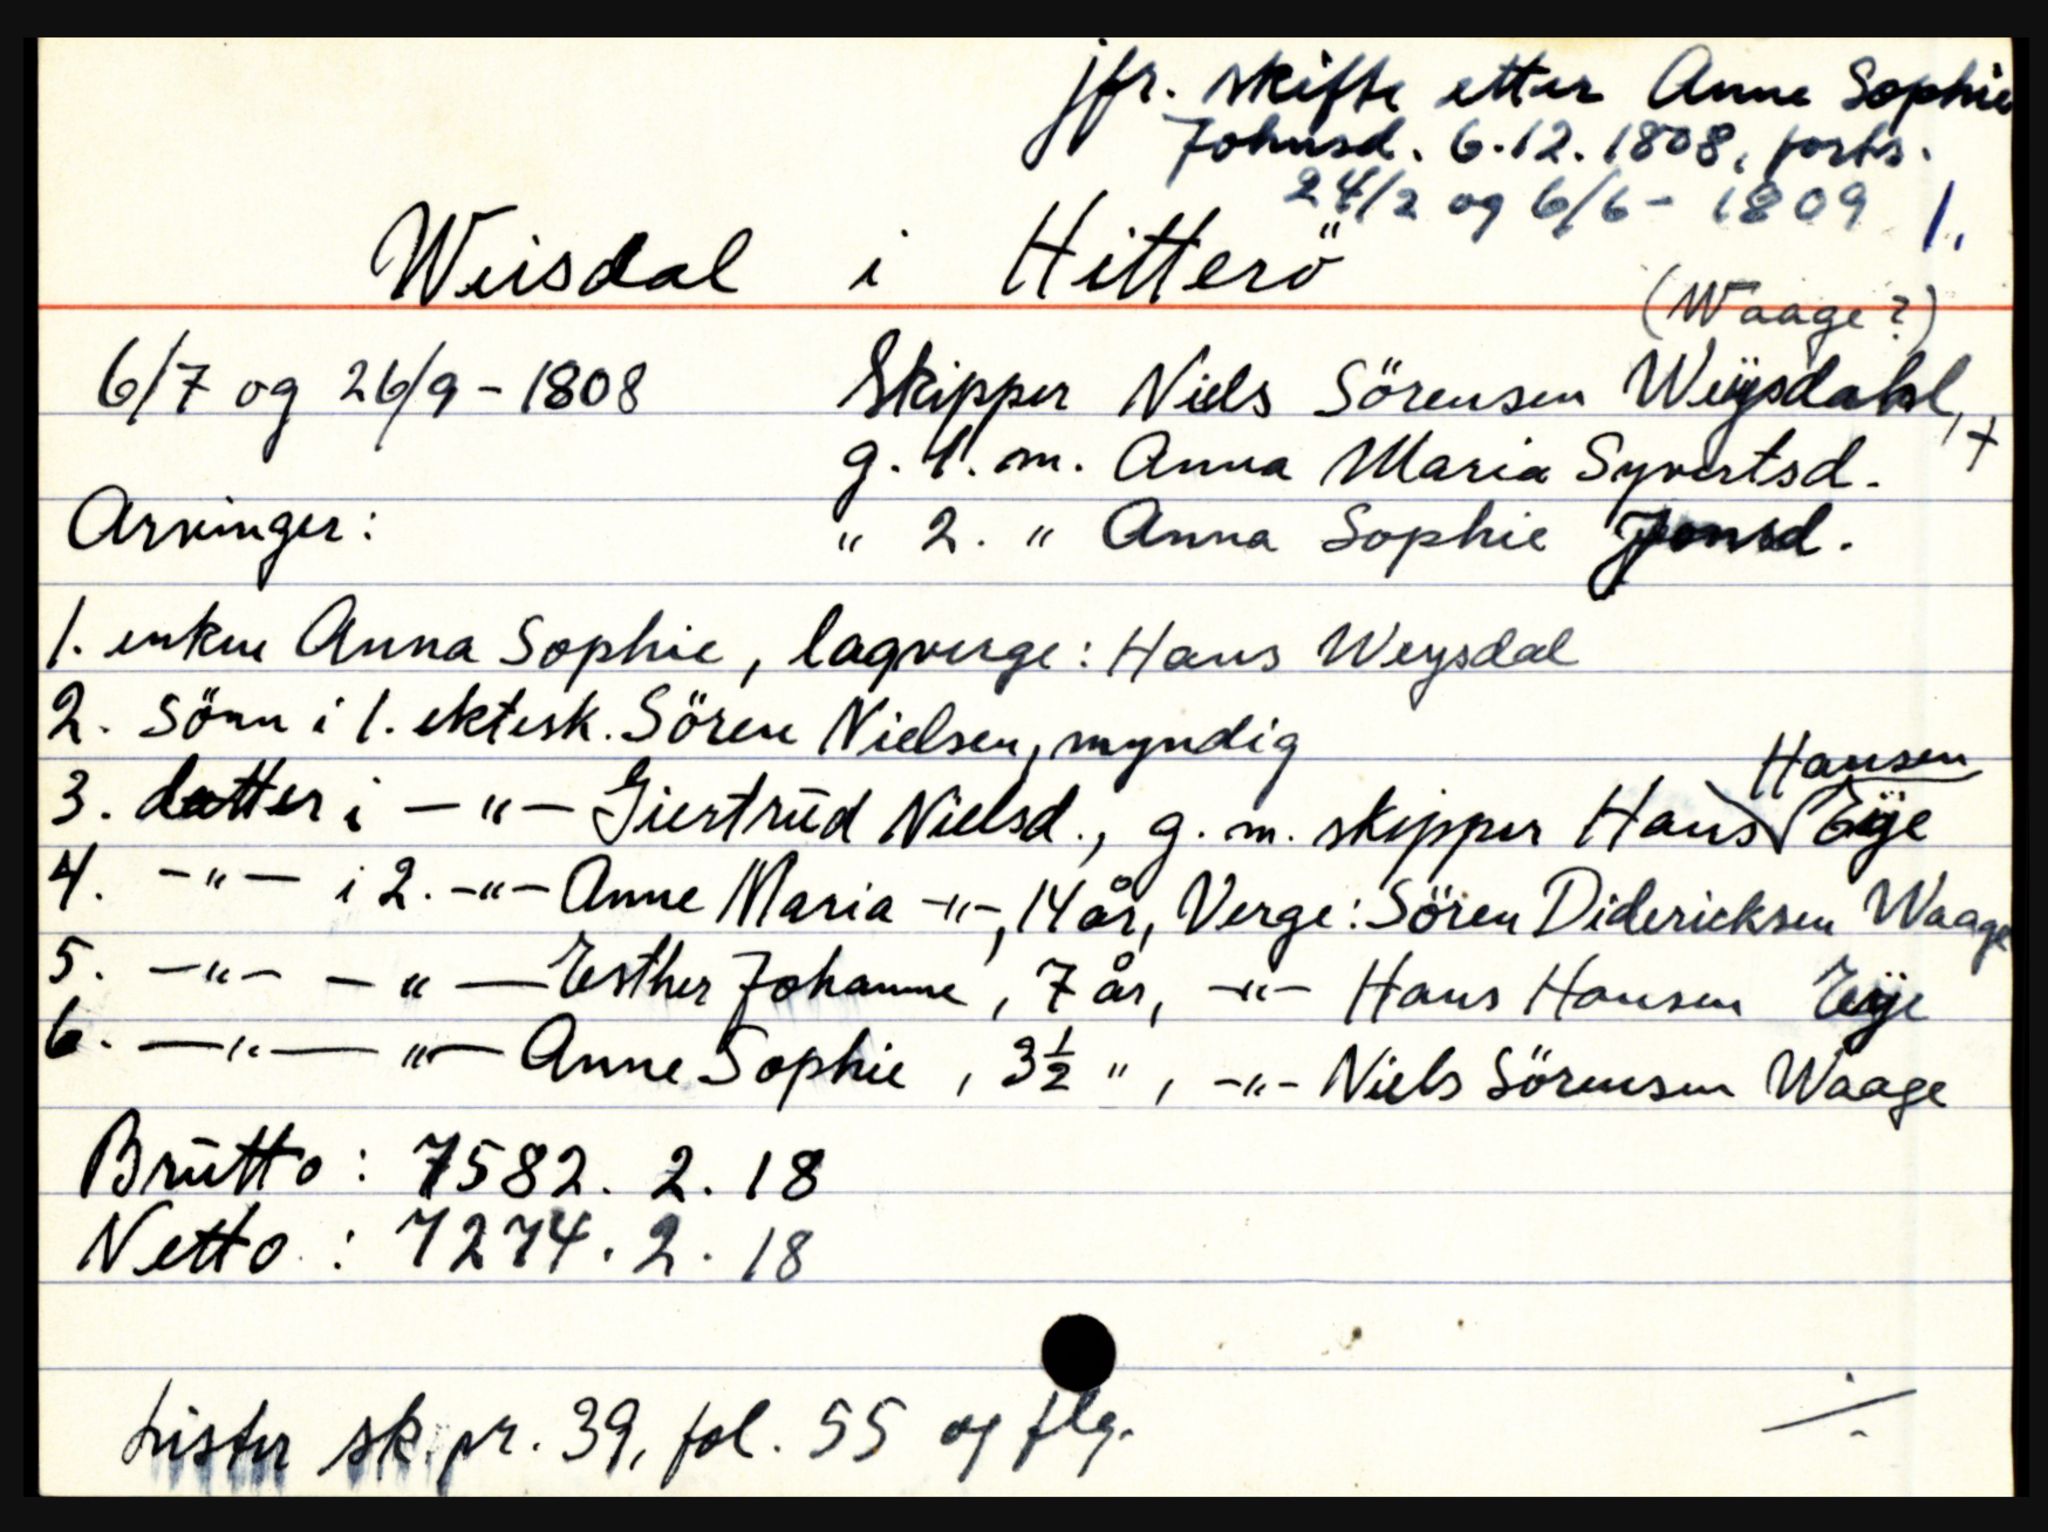 jfr. skifte etter Anne Sophie
Johnsd. 6.12.1808, forts.
24/2 og 6/6- 1809 1.
Weisdal i Hitterö
(Waage?)
6/7 og 26/9 - 1808 Skipper Niels Sörensen Weÿsdahl, +
g. 1. m. Anna Maria Syvertsd.
Arvinger: " 2. " Anna Sophie Jonsd.
1. enken Anna Sophie, lagverge: Hans Weysdal
2. Sönn i 1. ektesk. Sören Nielsen, myndig
Hansen
3. datter i - " - Giertrūd Nielsd., g. m. skipper Hans Eÿe
4. - " - i 2. - " - Anne Maria - " -, 14 år, Verge: Sören Didericksen Waage
5. - " - - " - Esther Johanne, 7 år, - " - Hans Hansen Eÿe
6. - " - " - Anne Sophie, 3½ ", - " - Niels Sörensen Waage
Brūtto: 7582. 2. 18
Netto: 7274. 2. 18
Lister sk. pr. 39, fol. 55 og flg.
./.